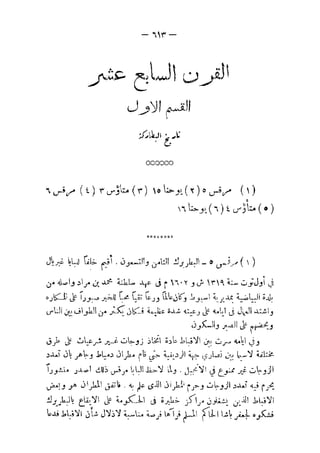 — ٦١٣ —
القرن السابع عشر
القسم الاول
تاريخ البطاركة
(١) مرقس ٥ (٢) يوحنا ١٥ (٣) متاؤس ٣ (٤) مرقس ٦
(٥) متاؤس ٤ (٦) يوحنا ١٦
(١) مرقس ٥ ــ البطريرك الثامن والتسعون. أقيم خلفاً للبابا غبريال
في أول توت سنة ١٣١٩ ش و ١٦٠٢ م فى عهد سلطنة محمد بن مراد وأصله من
بلدة البياضية بمديرية اسيوط وكان عالماً ورعاً تقياً محباً للخير صبوراً على المكاره
واشتد الهول فى ايامه على رعيته شدة عظيمة فكان يكثر من الطواف بين الناس
ويحضهم على الصبر والسكون
وفى ايامه سرت بين الاقباط عادة اتخاذ زوجات غير شرعيات على طرق
مختلفة لاسيما بين نصارى جهة الوجه البحرى حتى قام مطران دمياط وجاهر بأن تعدد
الزوجات غير ممنوع في الانجيل. ولما لاحظ البابا مرقس ذلك أصدر منشوراً
يحرم فيه تعدد الزوجات وحرم المطران الذى علم به. فاتفق المطران هو وبعض
الاقباط الذين يشغلون مراكز خطيرة فى الحكومة على الايقاع بالبطريرك
فشكوه لجعفر باشا الحاكم المسلم فرآها فرصة مناسبة لاذلال شأن الاقباط فدعا